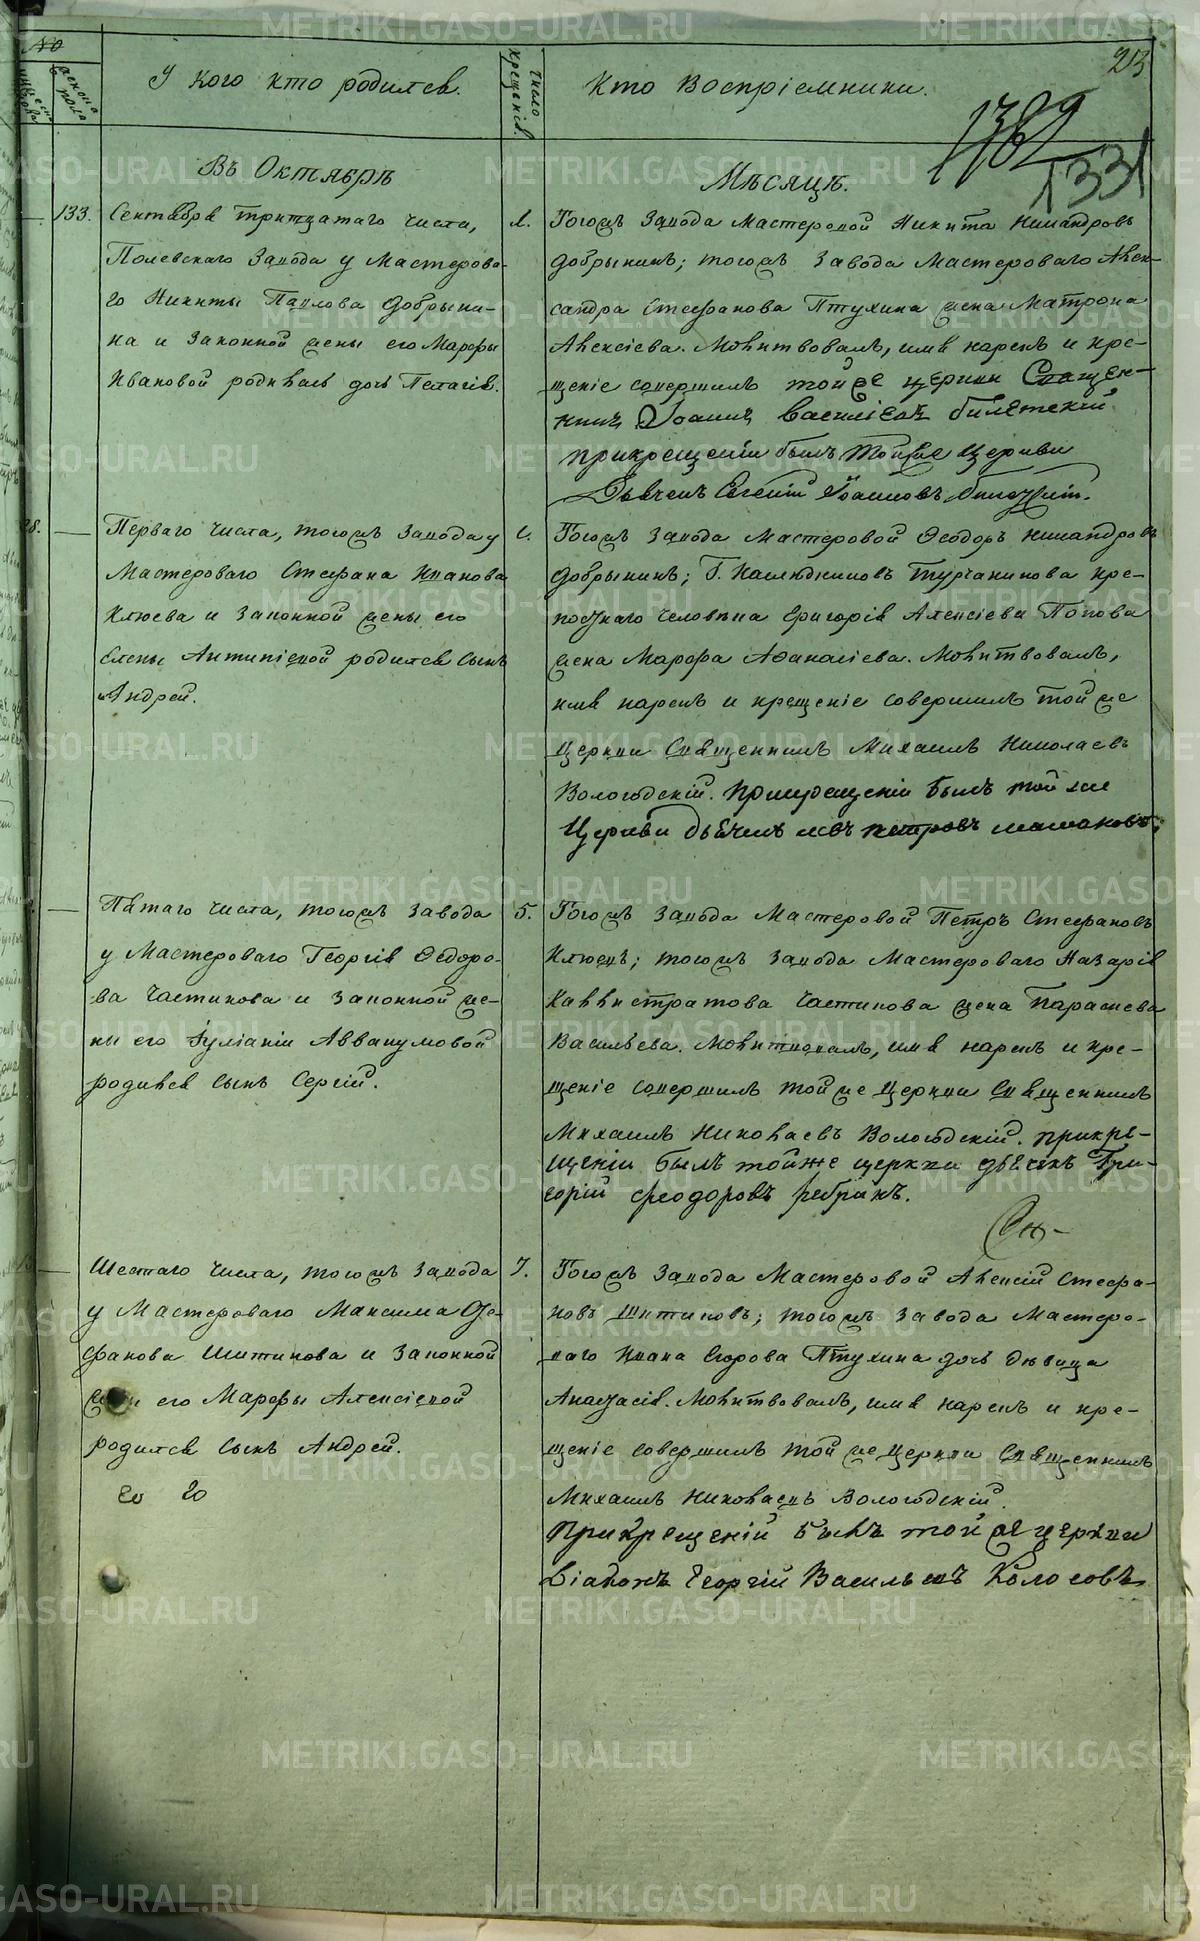 №
мужеска пола
женска пола
У кого кто родился.
число крещенія.
Кто Воспріемники.
213
1331
Въ Октябрѣ
Мѣсяцѣ.
133.
Сентября тритцатаго числа,
Полевскаго Завода у Мастерова-
го Никиты Павлова Добрыни-
на и Законной жены его Марфы
Ивановой родилась дочь Пелагія.
1.
Тогожъ Завода Мастеровой Никита Никандровъ
Добрынинъ; тогожъ завода Мастероваго Алек-
сандра Стефанова Птухина жена Матрона
Алексіева. Молитвовалъ, имя нарекъ и кре-
щеніе совершилъ тойже церкви Священ-
никъ Іоаннъ Василіевъ
прикрещеніи былъ тойже Церкви
Дьячекъ Евгеній Іоанновъ
28.
Перваго числа, тогожъ Завода у
Мастероваго Стефана Иванова
Клюева и Законной жены его
Елены Антипіевой родился сынъ
Андрей.
Тогожъ Завода Мастеровой Ѳеодоръ Никандровъ
Добрынинъ; Г. Наслѣдниковъ Турчанинова кре-
постнаго человѣка Григорія Алексіева Попова
жена Марфа Аѳанасіева. Молитвовалъ,
имя нарекъ и крещеніе совершилъ тойже
Церкви Священникъ Михаилъ Николаевъ
Вологодскій. прикрещеніи былъ тойже
Церкви дьячекъ левъ петровъ
Пятаго числа, тогожъ завода
у Мастероваго Георгія Ѳедоро-
ва Частикова и Законной же-
ны его Іуліаніи Аввакумовой
родился сынъ Сергій.
5.
Тогожъ Завода Мастеровой Петръ Стефановъ
Клюевъ; тогожъ Завода Мастероваго Назарія
Каллистратова Частикова жена Параскева
Васильева. Молитвовалъ, имя нарекъ и кре-
щеніе совершилъ тойже Церкви Священникъ
Михаилъ Николаевъ Вологодскій. прикре-
щеніи былъ тойже церкви дьячекъ Гри-
горій феодоровъ ребринъ.
Шестаго числа, тогожъ Завода
у Мастероваго Максима Сте-
фанова Шитикова и Законной
жены его Марфы Алексіевой
родился сынъ Андрей.
7.
Тогожъ Завода Мастеровой Алексій Стефа-
новъ Шитиковъ; тогожъ Завода Мастеро-
ваго Ивана Егорова Птухина дочь дѣвица
Анастасія. Молитвовалъ, имя нарекъ и кре-
щеніе совершилъ тойже Церкви Священникъ
Михаилъ Николаевъ Вологодскій.
прикрещеній былъ тойже церкви
Діаконъ Георгій Васильевъ Колосовъ
METRIKI.GASO-URAL.RU